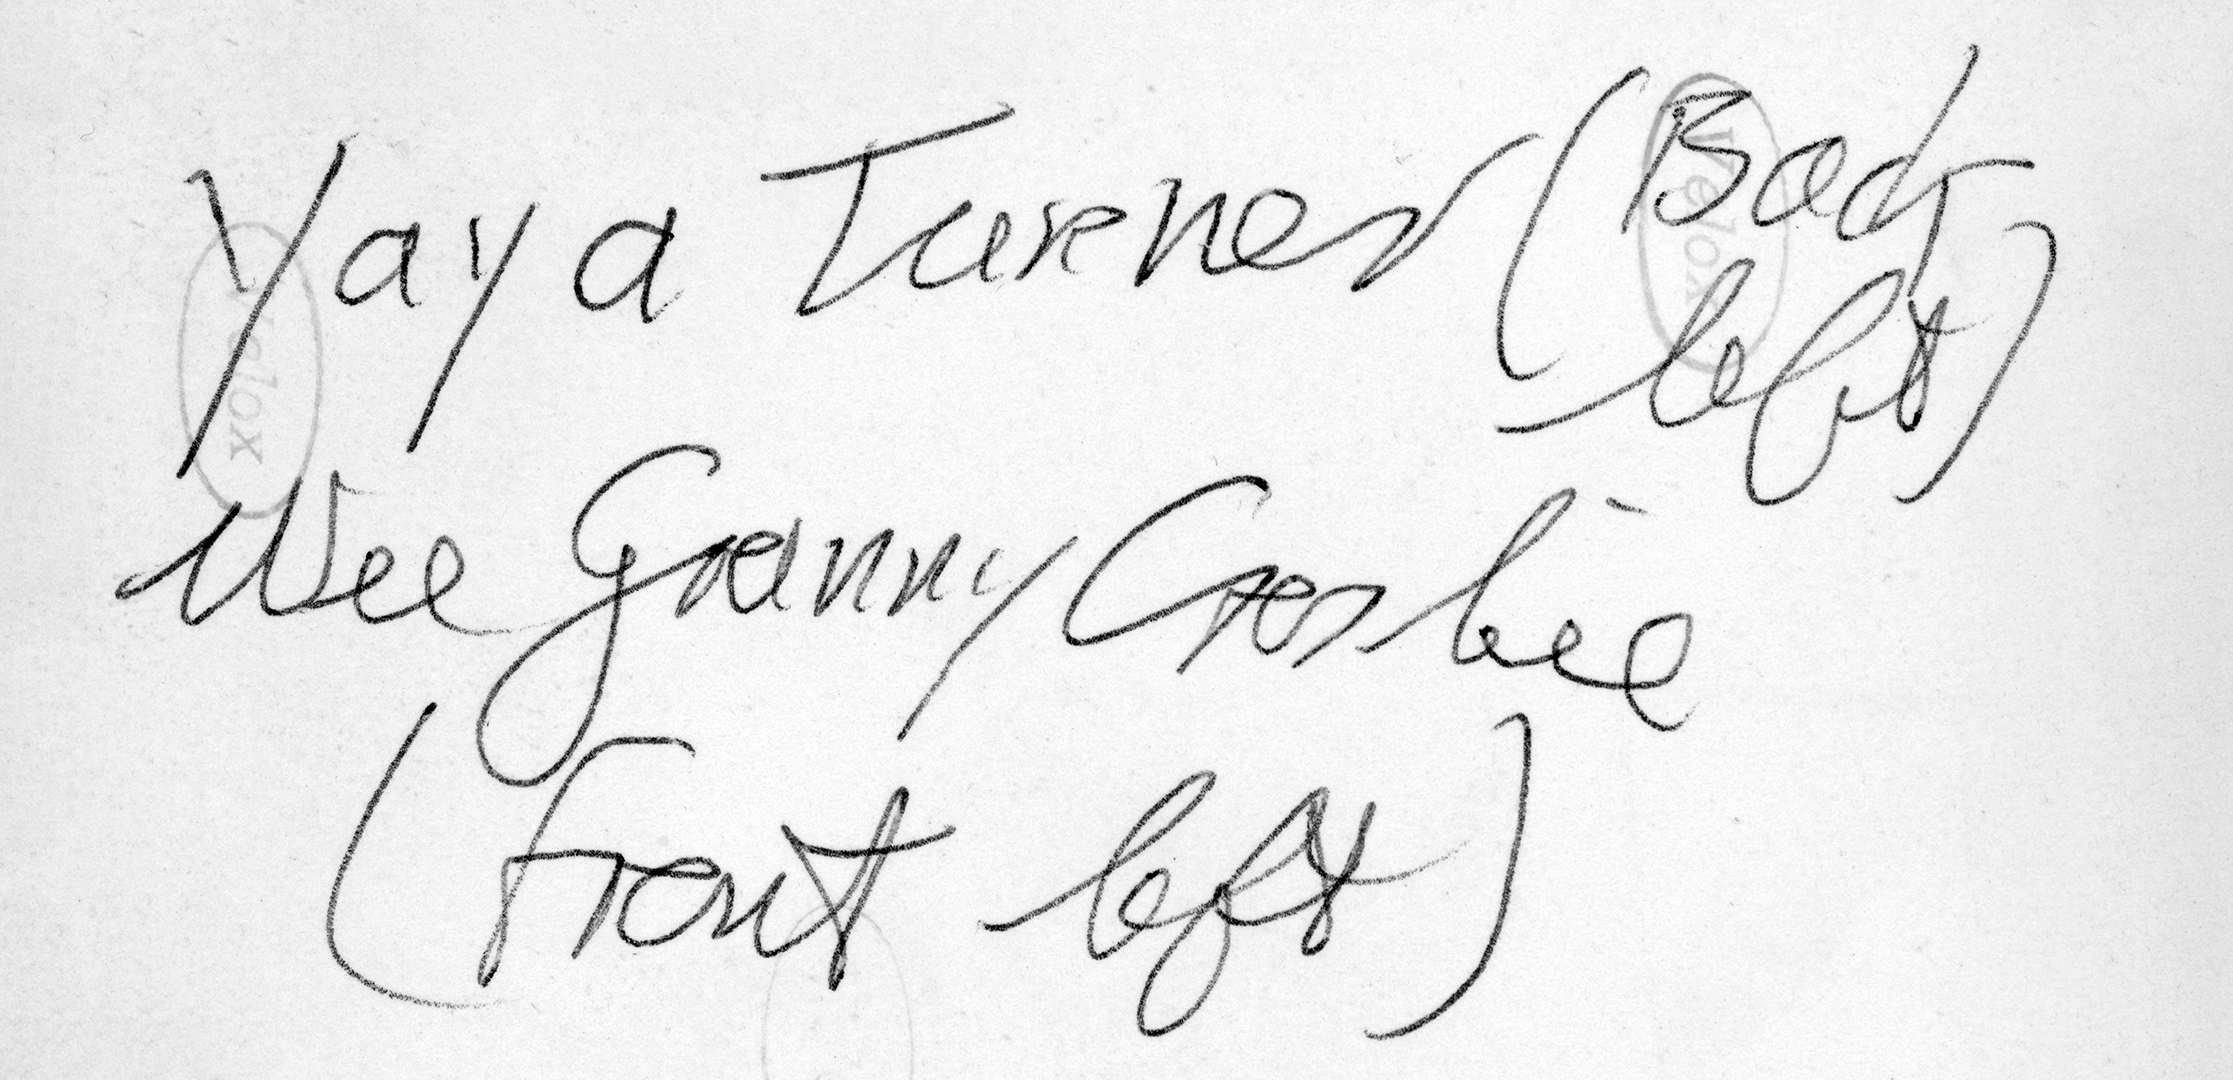 Yaya Turner (Back
left)
Wee Granny Crosbie
(Front left)
Velox
Velox